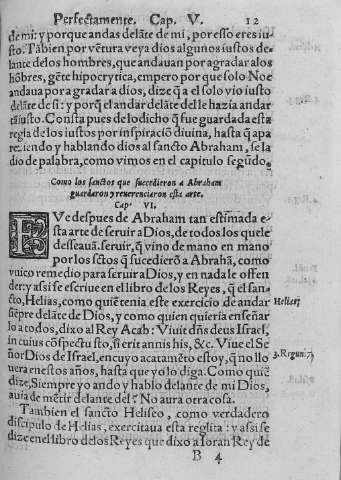 Perfectamente. Cap. V. 12
de mi: y porque andas delãte de mi, por esso eres iu-
sto. Tãbien por vẽtura veya dios algunos iustos de-
lante de los hombres, que andauan por agradar a los
hõbres, gẽte hipocrytica, empero por que solo Noe
andaua por agradar a dios, dize q̃ a el solo vio iusto
delãte de si: y porq̃ el andar delãte del le hazía andar
tã iusto. Consta pues de lo dicho q̃ fue guardada esta
regla de los iustos por inspiraciõ diuina, hasta q̃ apa
reziendo y hablando dios al sancto Abraham, se la
dio de palabra, como vimos en el capitulo segũdo.
Como los sanctos que sucedieron a Abraham
guardaron y reuerenciaron esta arte.
Cap. VI.
FVe despues de Abraham tan estimada e-
sta arte de seruir a Dios, de todos los que le
desseauã seruir, q̃ vino de mano en mano
por los sctõs q̃ sucedierõ a Abrahã, como
vnico remedio para seruir a Dios, y en nada le offen
der: y assi se escriue en el libro de los Reyes, q̃ el san-
cto, Helias, como quiẽ tenia este exercicio de andar
siẽpre delãte de Dios, y como quien queria enseñar
lo a todos, dixo al Rey Acab: Viuit dñs deus Israel,
in cuius cõspectu sto, si erit annis his, &c. Viue el Se
ñor Dios de Israel, en cuyo acatamẽto estoy, q̃ no llo
uera en estos años, hasta que yo lo diga. Como quiẽ
dize, Siempre yo ando y hablo delante de mi Dios,
auia de mẽtir delante del? No aura otra cosa.
Tambien el sancto Heliseo, como verdadero
discipulo de Helias, exercitaua esta reglita: y assi se
dize en el libro de los Reyes que dixo a Ioran Rey de
B 4
Helias;
3. Regun. 7.